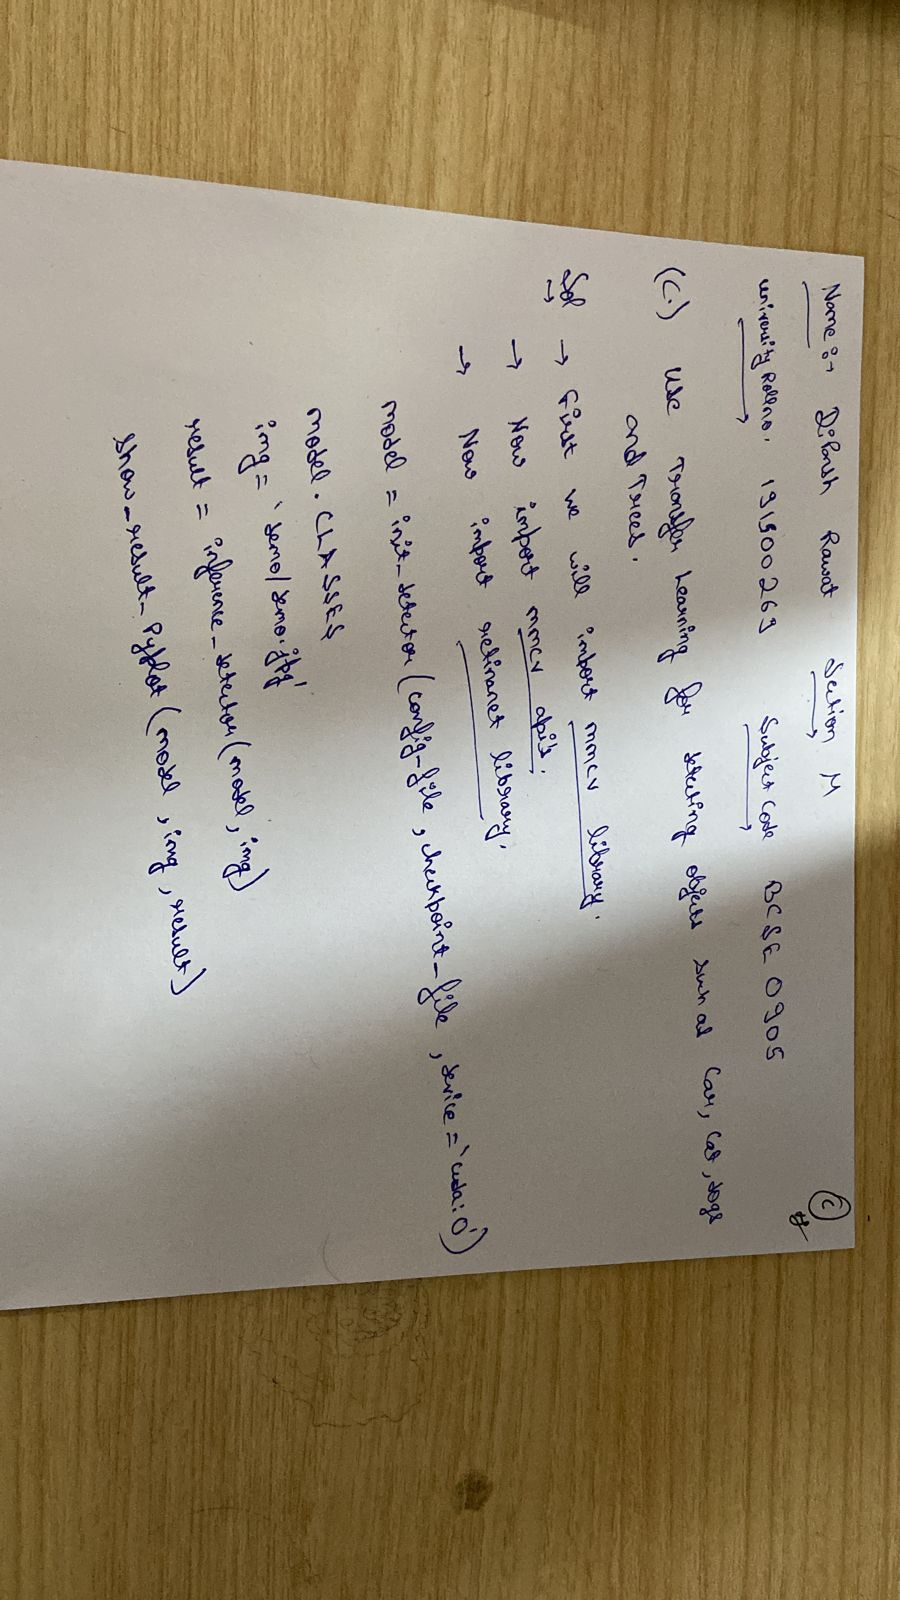 Name :→ Dipansh Rawat Section M
University Rollno. 191500269 Subject Code BCSE 0905
(C.) Use Transfer Learning for detecting objects such as Car, Cat, dogs
and Trees.
Sol → First we will import mmcv library.
→ Now import mmcv api's.
→ Now import retinanet library.
model = init_detector (config_file, checkpoint_file, device = 'cuda:0')
model. CLASSES
img = 'demo/demo.jpg'
result = inference_detector (model, img)
show_result_Pyplot (model, img, result)
(C)